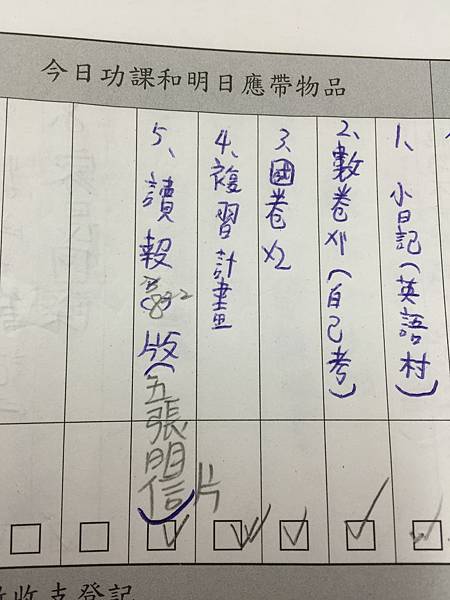 今日功課和明日應帶物品
1、小日記(英語村)
2、數卷x1(自己考)
3、國卷x2
4、複習計畫
5、讀報 版(五張明信片)
收支登記